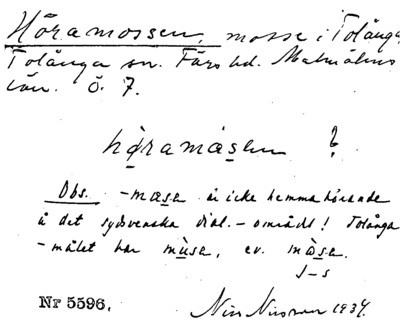 Höramossen, mosse i Tolånga,
Tolånga sn. Färs hd. Malmöhus
län. ö. 7.
hǫ̀ramásen ?
Obs. -masa är icke hemmahörande
å det sydsvenska dial.-området! Tolånga
-målet har mùsa, ev. mòsa.
J-s
Nr 5596.
Nils Nilsson 1934.